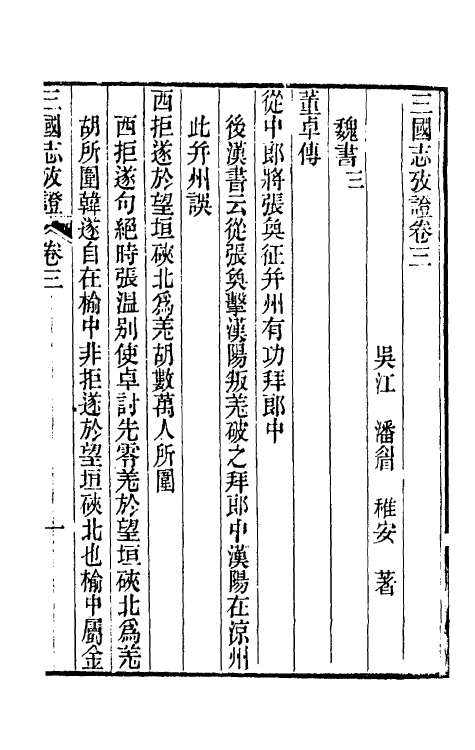 三國志攷證卷三
吳江 潘眉 稚安 著
魏書三
董卓傳
從中郎將張奐征并州有功拜郎中
後漢書云從張奐擊漢陽叛羌破之拜郎中漢陽在涼州
此并州誤
西拒遂於望垣硤北為羌胡數萬人所圍
西拒遂句絕時張溫别使卓討先零羌於望垣硤北為羌
胡所圍韓遂自在榆中非拒遂於望垣硤北也榆中屬金
三國志攷證 卷三 一